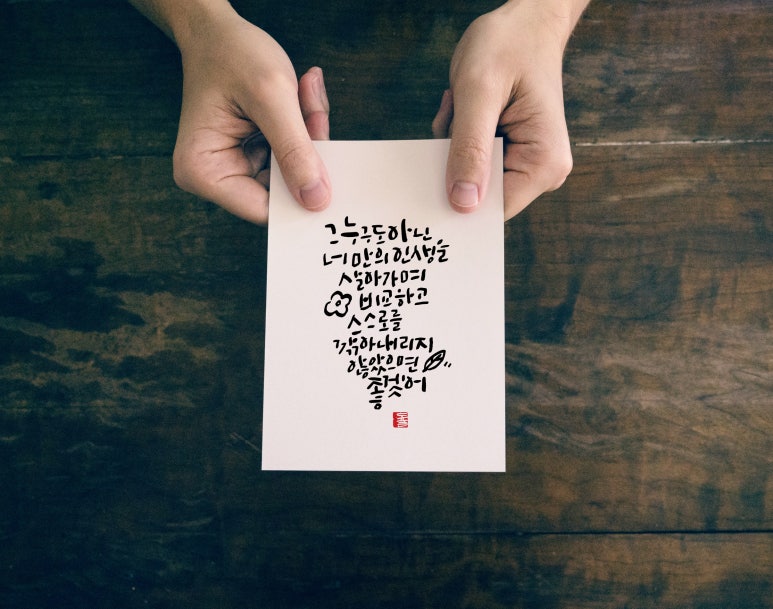 그 누구도 아닌
너만의 인생을
살아가며
비교하고
스스로를
깎아내리지
않았으면
좋겠어